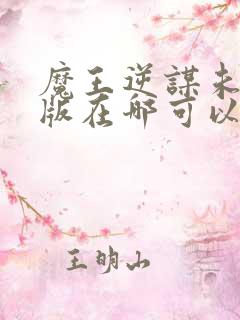 魔王逆謀未
版在哪可以
王明山